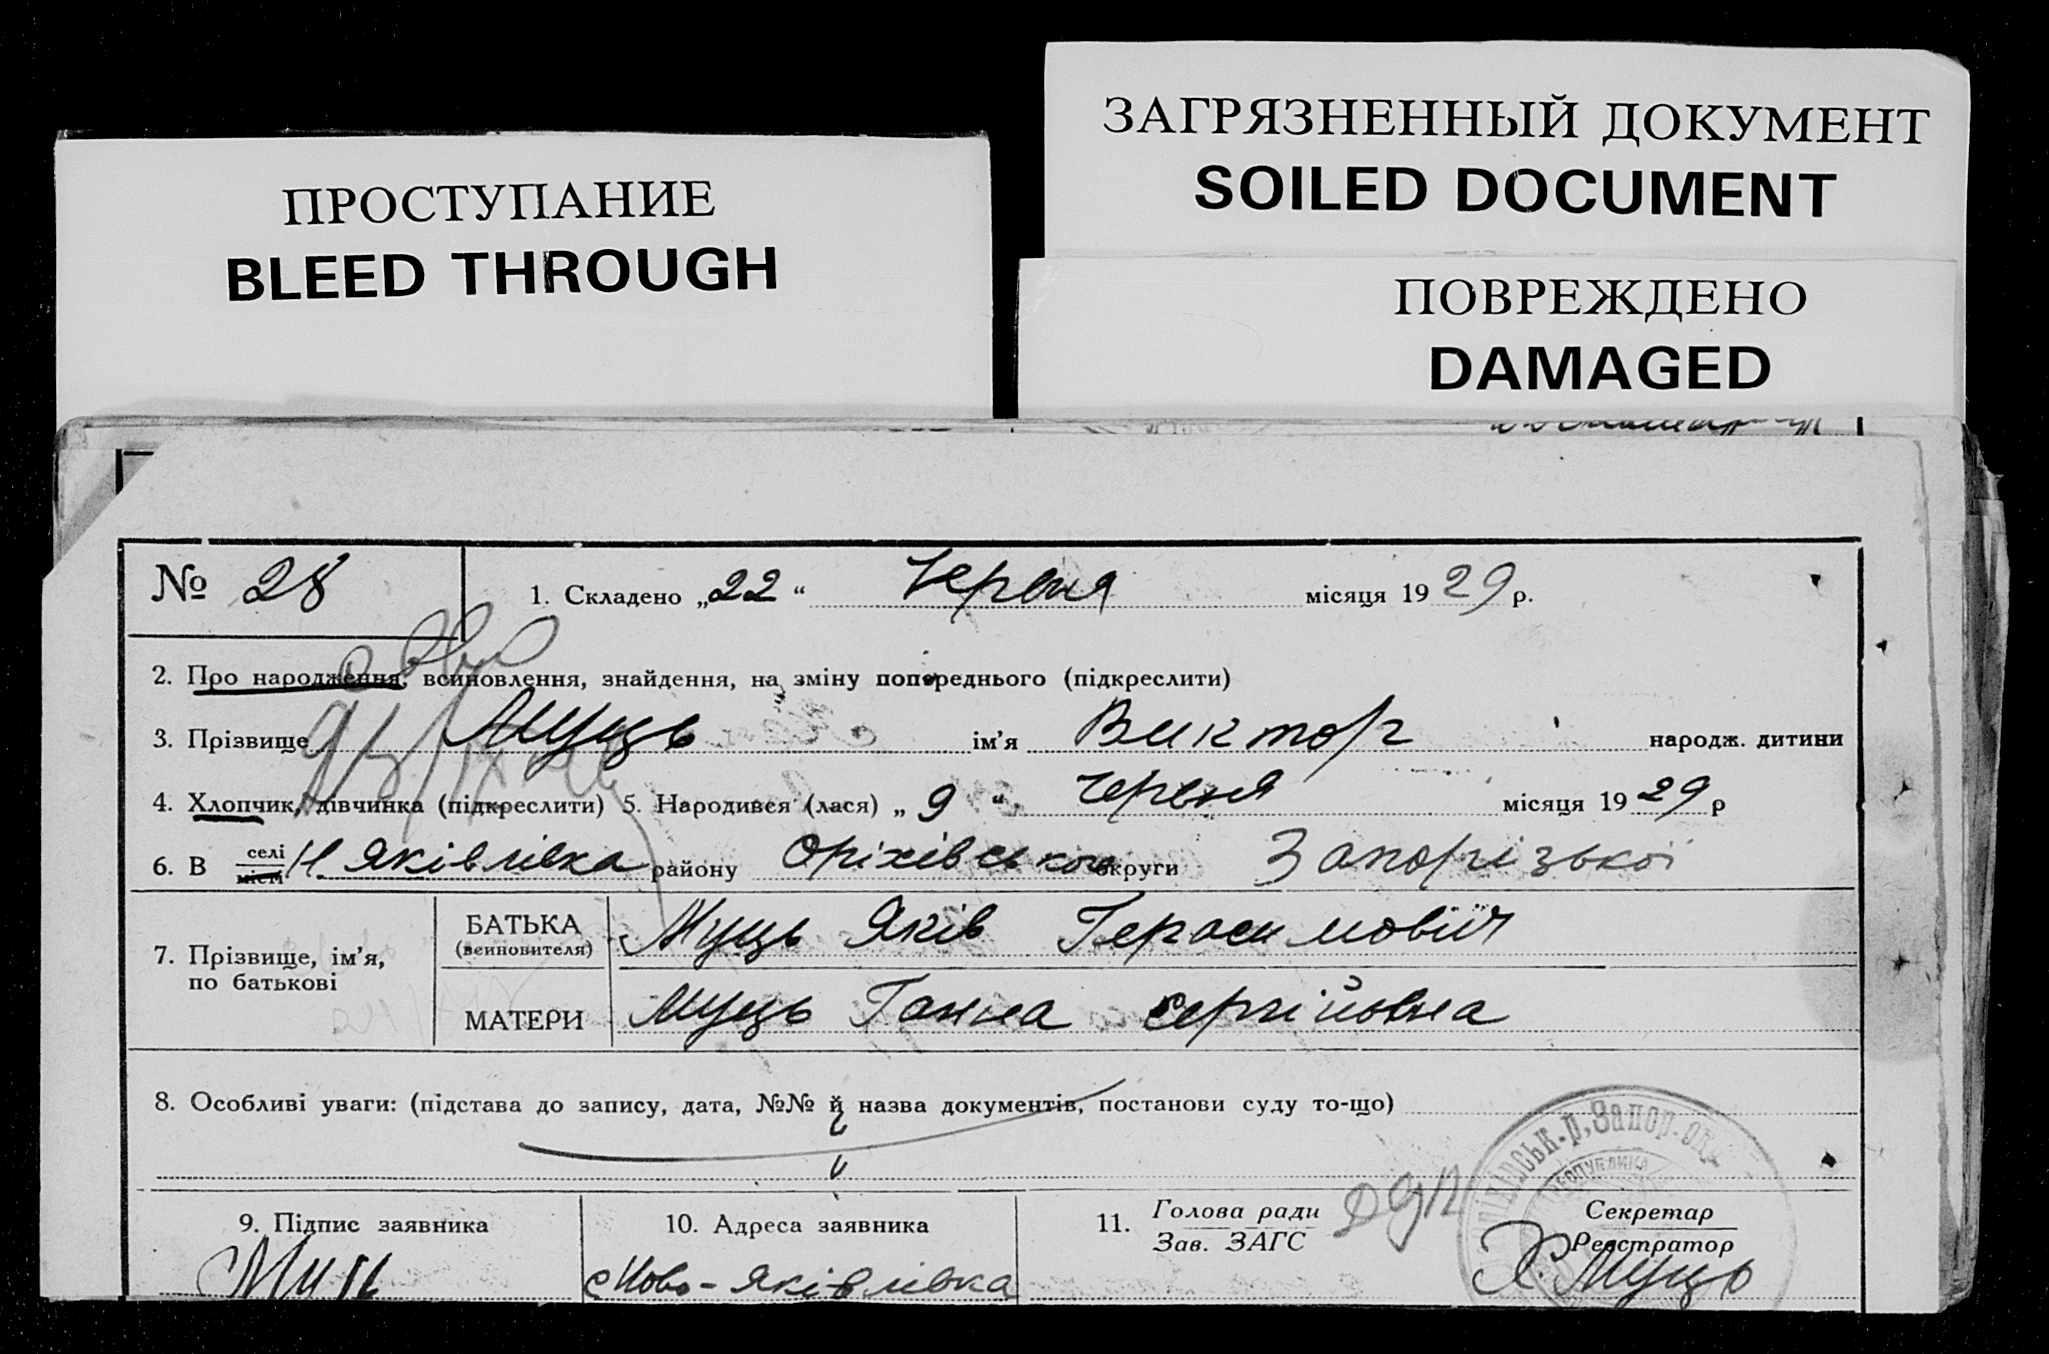 ЗАГРЯЗНЕННЫЙ ДОКУМЕНТ
SOILED DOCUMENT
ПРОСТУПАНИЕ
BLEED THROUGH
ПОВРЕЖДЕНО
DAMAGED
№ 28
1. Складено „22“ Червня місяця 1929 р.
2. Про народження, всиновлення, знайдення, на зміну попереднього (підкреслити)
3. Прізвище Муць ім'я Виктор народж. дитини
4. Хлопчик, дівчинка (підкреслити) 5. Народився (лася) „9“ Червня місяця 1929 р
6. В селі місті Н. Яківлівка району Оріхівського округи Запорізької
7. Прізвище, ім'я, по батькові
БАТЬКА (всиновителя) Муць Яків Герасимовіч
МАТЕРИ Муць Ганна Сергіївна
8. Особливі уваги: (підстава до запису, дата, №№ й назва документів, постанови суду то-що)
9. Підпис заявника
Муць
10. Адреса заявника
с Ново-Яківлівка
11. Голова ради
Зав. ЗАГС
Секретар
Реєстратор
Х. Муць